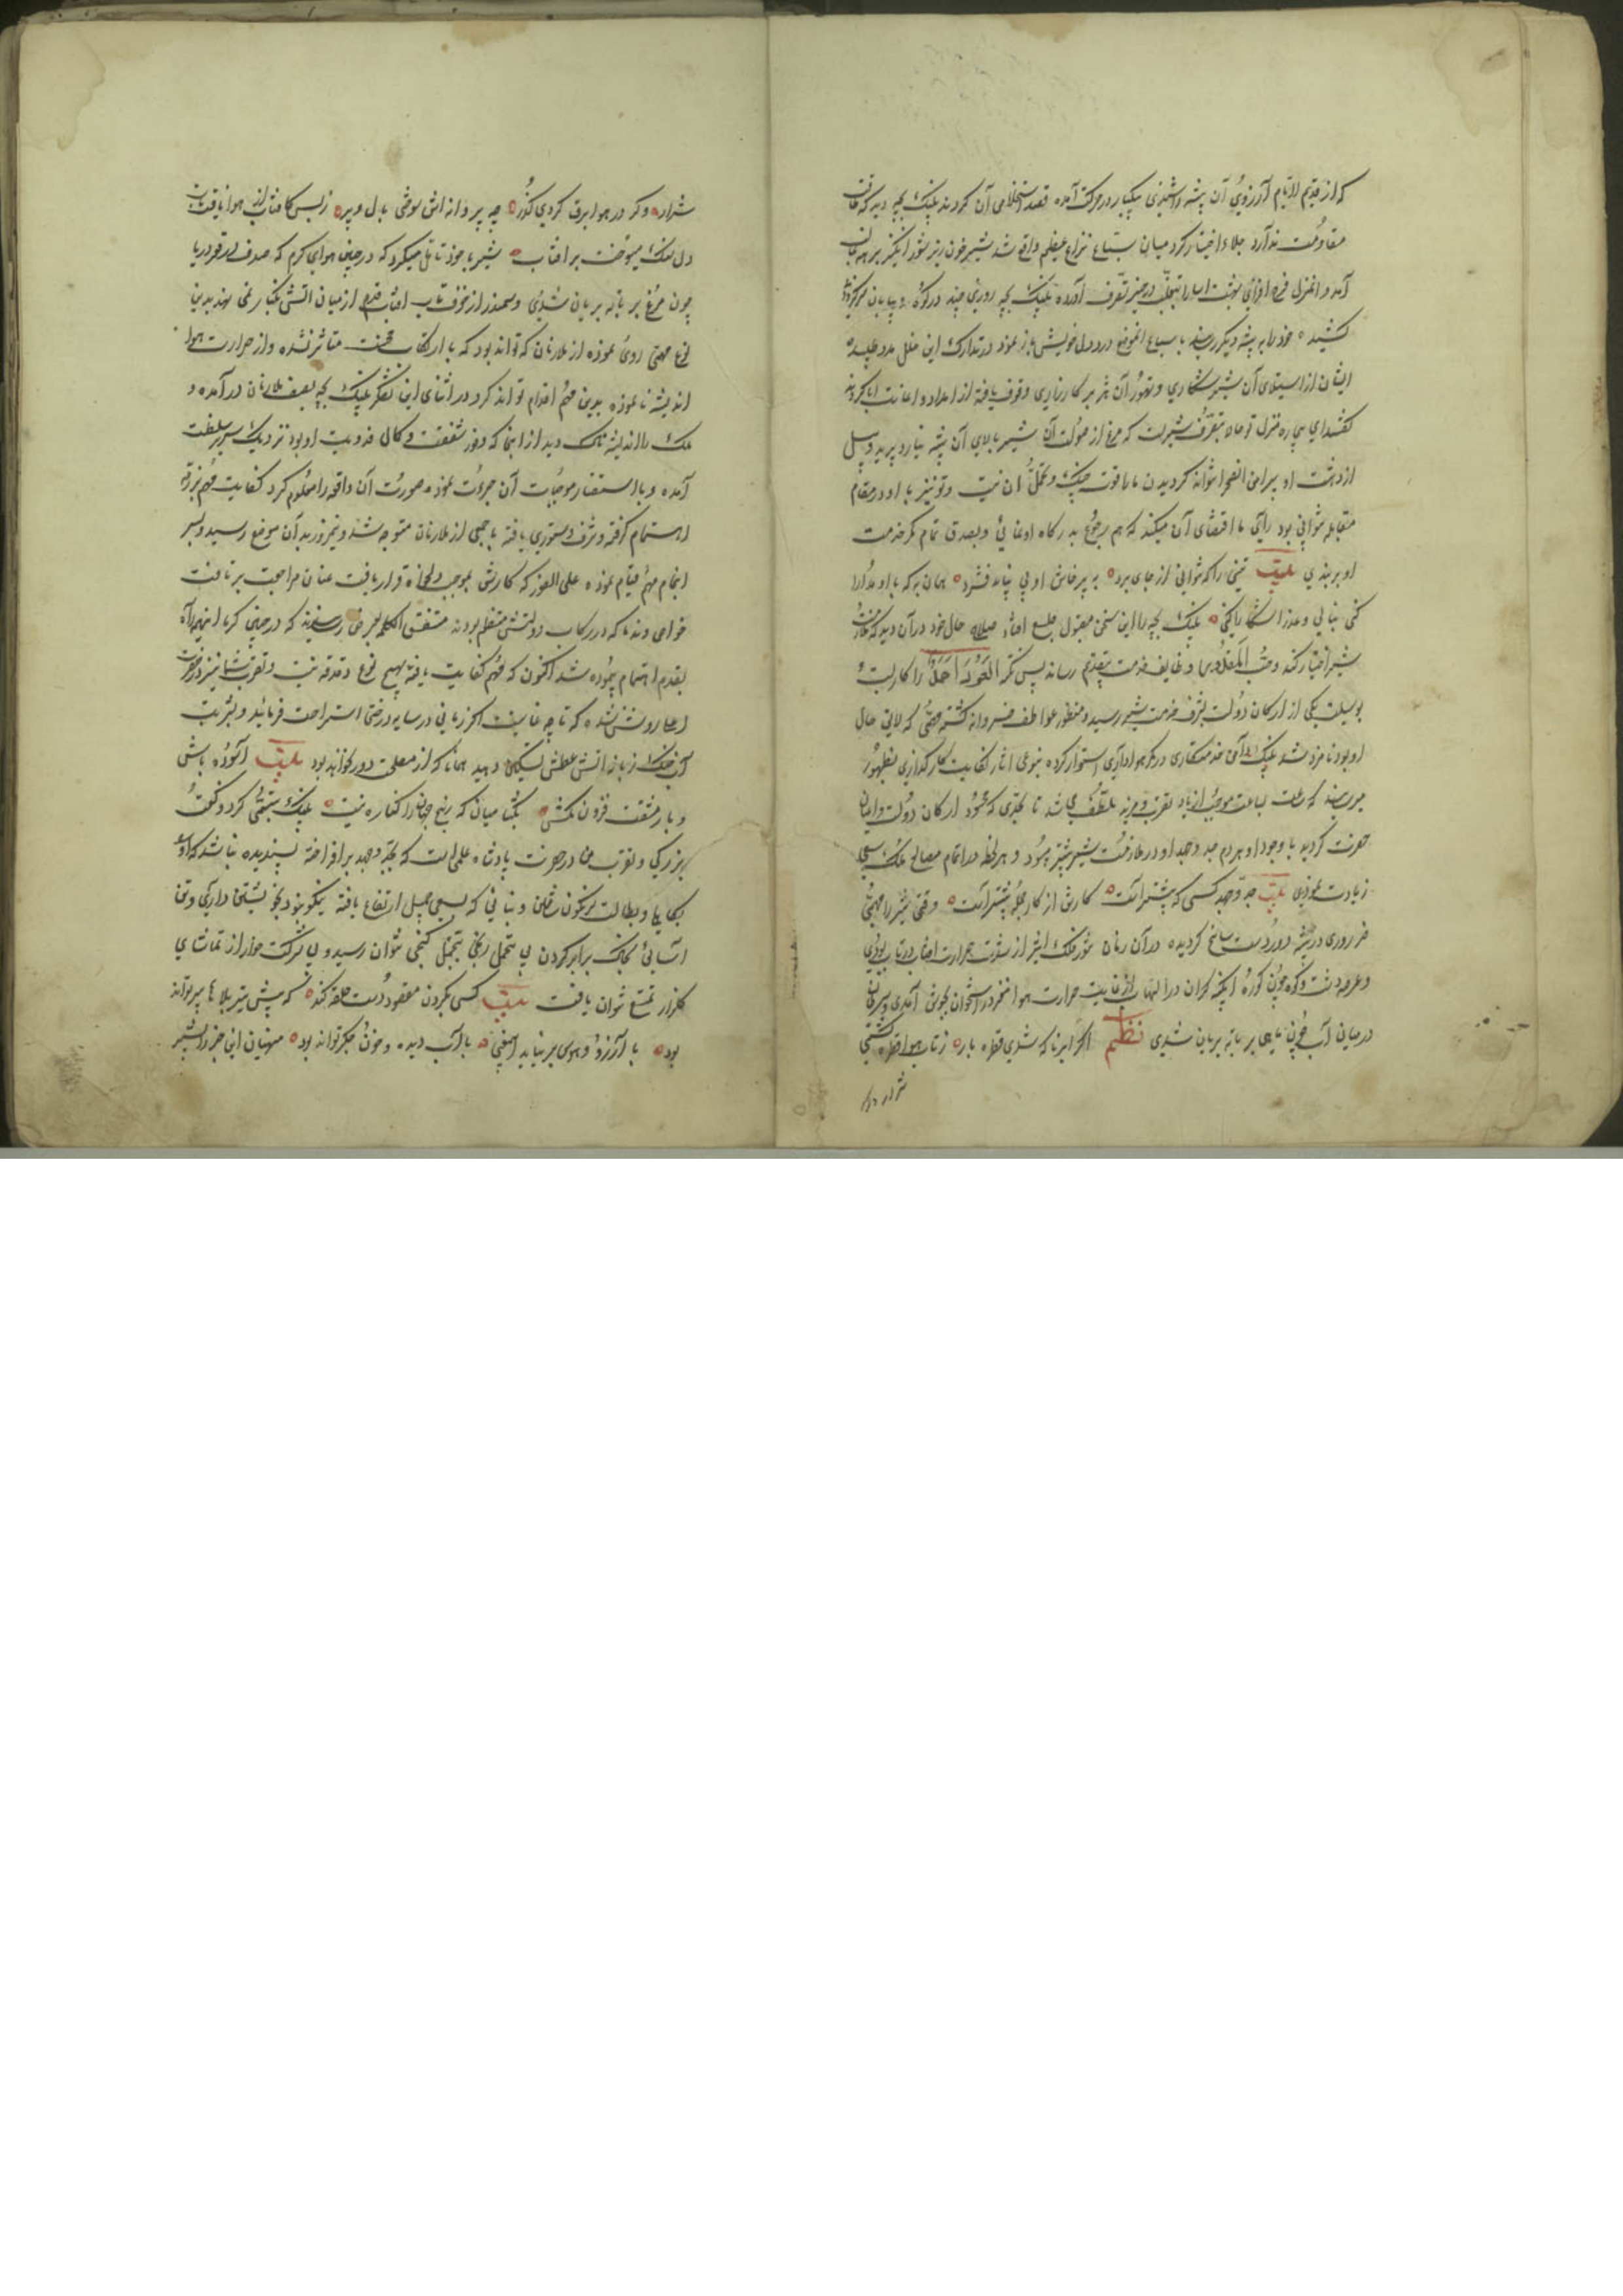 که از قدیم الایام آرزوی آن بیشه داشتندی بیکبار در حرکت آمده قصد استخلاص آن کردند پلنک بچه دید که طاقت
مقاومت ندارد جلاء اختیار کرد میان سباع نزاع عظیم واقع شد شیر خون ریز شور انکیز بر همه غالب
آمد و انمنزل فرح افزای بهشت اسا را در حیز تصرف آورده پلنک بچه روزی چند در کوه و بیابان سرکردانی
کشیده خود را به بیشه دیکر رسانید با سباع انموضع درد دل خویش باز نمود در تدارک این خلل مدد طلبید
ایشان از استیلای آن شیر شکاری و تهور آن هژبر کارزاری وقوف یافته از امداد و اعانت ابا کردند
کفتند ای بیچاره منزل تو حالا بتصرف شیریست که مرغ از صولت آن شیر بالای آن بیشه نیارد پرید و پیل
از دهشت او پیرامن انصحرا نتواند کردیدن ما را قوت جنک و تحمل ان نیست و تو نیز با او در مقام
مقابله نتوانی بود رأی ما اقتضای آن میکند که هم رجوع بدرکاه او نمائی و بصدق تمام کمر خدمت
او بربندی بیت تنی را که نتوانی از جای برد به پرخاش او پی نباید فشرد همان به که با او مدارا
کنی بنا لی و عذر آشکارا کنی پلنک بچه را این سخن معقول طبع افتاد صلاح حال خود در آن دید که ملازمت
شیر اختیار کند و حسب المقدور وظایف خدمت بتقدیم رساند پس نکته العود احمد را کاربست و
بوسیله یکی از ارکان دولت بشرف خدمت شیر رسید و منظور عواطف خسروانه کشته بمهمی که لایق حال
او بود نامزد شد پلنک دامن خدمتکاری در کمر هواداری استوار کرده بنوعی اثار کفایت کارکذاری بظهور
میرسانید که ساعت بساعت موجب ازدیاد تقرب و مزید تلطف می شد تا بحدی که محسود ارکان دولت و اعیان
حضرت کردید با وجود او هر دم جد و جهد او در ملازمت شیر بیشتر بود و هر لحظه در اتمام مصالح ملک سعی
زیادت نمودی بیت جد و جهد کسی که بیشتر است کارش از کار جمله پیشتر است وقتی شیر را مهمی
ضروری در بیشه دوردست سانح کردیده در آن زمان تنور فلک اثیر از شدت حرارت افتاب در تاب بودی
و عرصه دشت و کوه چون کوره ابکینه کران در التهاب از غایت حرارت هوا مغز در استخوان بجوش آمدی و سرطان
در میان آب چون ماهی بر تابه بریان شدی نظم اکر ابر ناکه شدی قطره بار ز تاب هوا قطره کشتی
شرار و کر
شرار وکر در هوا برق کردی کذر چو پروانه اش سوختی بال و پر ز بس کافتاب از هوا یافت تاب
دل سنک میسوخت بر افتاب شیر با خود تأمل میکرد که در چنین هوای کرم که صدف در قعر دریا
چون مرغ بر تابه بریان شدی و سمندر از خوف تاب افتاب قدم از میان اتش بکنار نمی نهد بدین
نوع مهمی روی نموده از ملازمان که تواند بود که با ارتکاب محنت متاثر نشده و از حرارت هوا
اندیشه نا نموده بدین مهم اقدام تواند کرد در اثنای این تفکر پلنک بچه بصف ملازمان در آمده و
ملک را اندیشه ناک دید از انجا که وفور شفقت و کمال فدویت او بود نزدیک سریر سلطنت
آمده و با استفسار موجبات آن جرءت نموده صورت آن واقعه را معلوم کرد کفایت مهم بر ذمه
اهتمام کرفته و شرف دستوری یافته با جمعی از ملازمان متوجه شد و نیمروز بدان موضع رسید و بسر
انجام مهم قیام نموده علی الفور که کارش بموجب دلخواه قرار یافت عنان مراجعت برتافت
خواص و ندما که در رکاب دولتش منتظم بودند متفق الکلمه بعرض رسانیدند که در چنین کرما اینهمه راه
بقدم اهتمام پیموده شد اکنون که مهم کفایت یافته بهیچ نوع دغدغه نیست و تقرب شما نیز در حضرت
اعلا روشن شده که تا چه غایت است اکر زمانی در سایه درختی استراحت فرمائید و بشربت
آب خنک زبانه اتش عطش تسکین دهید همانا که از مصلحت دور نخواهد بود بیت آسوده باش
و بار مشقت فزون مکش بکشا میان که رنج جهان را کناره نیست پلنک تبسمی کرد و کفت
بزرکی و تقرب من در حضرت پادشاه علمیست که بجد و جهد برافراخته پسندیده نباشد که او را
بکاهلی و بطالت نکون ساختن و بنائی که بسعی جمیل ارتفاع یافته نیکو بنود بخوشتن داری و تن
آسانی بخاک برابر کردن بی تحمل رنجی بتجمل کنجی نتوان رسید و بی شرکت خار از تماشای
کلزار تمتع نتوان یافت بیت کسی بکردن مقصود دست حلقه کند که پیش تیر بلا ها سپر تواند
بود با آرزو و هوس بر نیاید اینمعنی با آب دیده و خون جکر تواند بود منهیان این خبر را بشیر